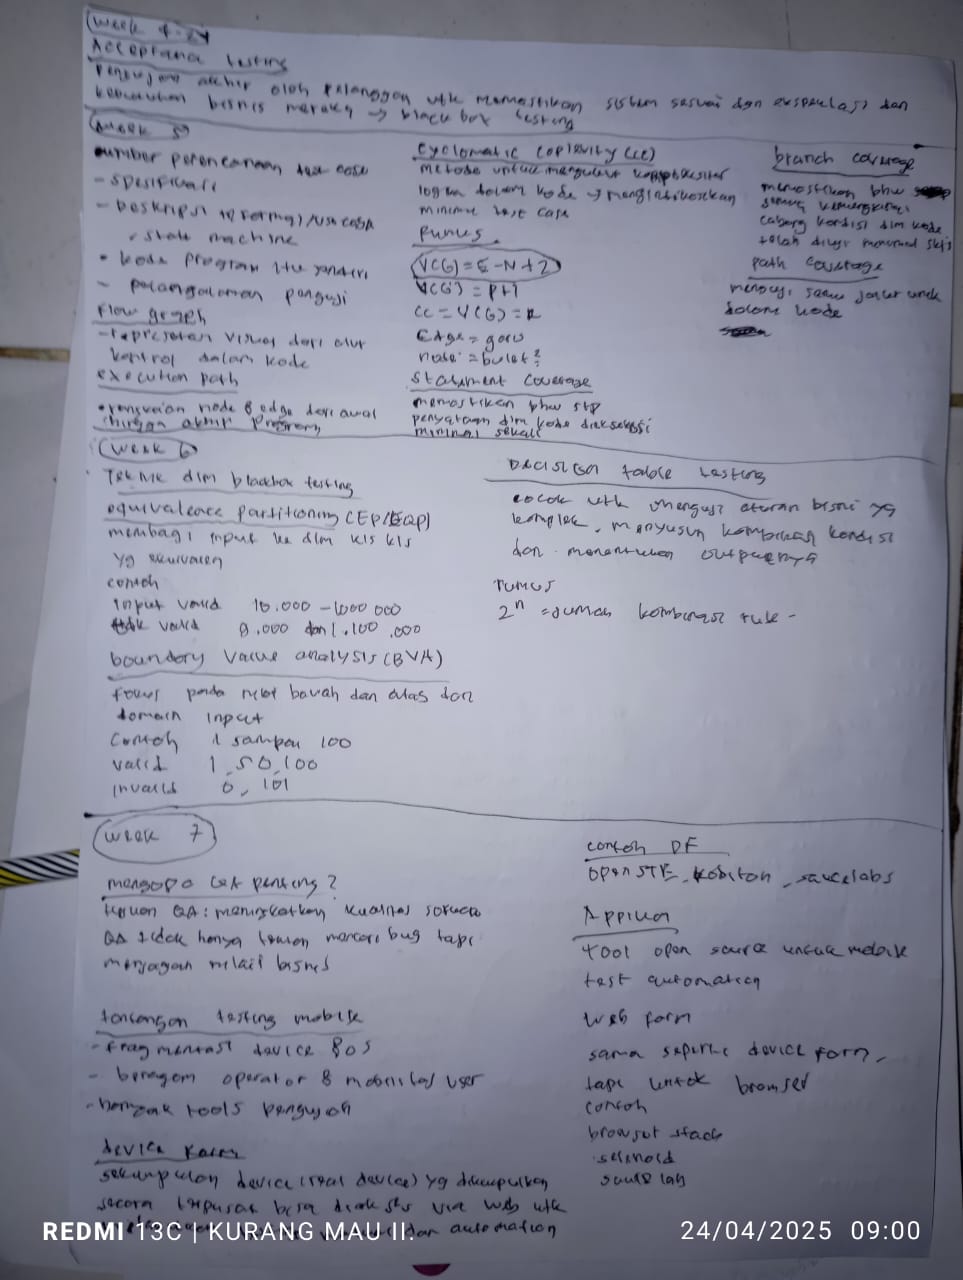 Week 4-24
Acceptance testing
Pengujian akhir oleh pelanggan utk memastikan sistem sesuai dgn ekspektasi dan
kebutuhan bisnis mereka → blackbox testing
Week 5
sumber perencanaan test case
- spesifikasi
- Deskripsi /use case
state machine
• kode program itu sendiri
- pengalaman penguji
Flow graph
- representasi visual dari alur
kontrol dalam kode
execution path
• rangkaian node & edge dari awal
hingga akhir program
Cyclomatic (CC)
metode untuk mengukur kompleksitas
logika dalam kode →
minimum test case
Rumus.
V(G) = E - N + 2
V(G) = P+1
CC = V(G) = R
Edge = garis
node = bulet²
Statement Coverage
memastikan bhw stp
penyataan dlm kode dieksekusi
minimal sekali
branch coverage
memastikan bhw
semua kemungkinan
cabang kondisi dlm kode
telah diuji
path coverage
menguji semua jalur unik
dalam kode
Week 6
Teknik dlm blackbox testing
equivalence partitioning (EP/EQP)
membagi input ke dlm kls kls
yg ekuivalen
contoh
input valid 10.000 - 1000 000
tdk valid 9.000 dan 1.100.000
boundary value analysis (BVA)
fokus pada nilai bawah dan atas dari
domain input
Contoh 1 sampai 100
valid 1, 50, 100
invalid 0, 101
Decision table testing
cocok utk menguji aturan bisnis yg
komplek, menyusun kombinasi kondisi
dan menentukan outputnya
rumus
2ⁿ = jumlah kombinasi rule -
Week 7
mengapa QA penting?
tujuan QA: meningkatkan kualitas
QA tidak hanya mencari bug tapi
menjaga nilai bisnis
tantangan testing mobile
- fragmentasi device & OS
- beragam operator & mobilitas user
- banyak tools pengujian
device farm
sekumpulan device (real device) yg dikumpulkan
secara terpusat bisa diakses via web utk
dan automation
contoh DF
openSTF, kobiton, saucelabs
Appium
tool open source untuk mobile
test automation
Web farm
sama seperti device farm,
tapi untuk browser
contoh
browser stack
selenoid
sauce lab
REDMI 13C | KURANG MAU II.
24/04/2025 09:00